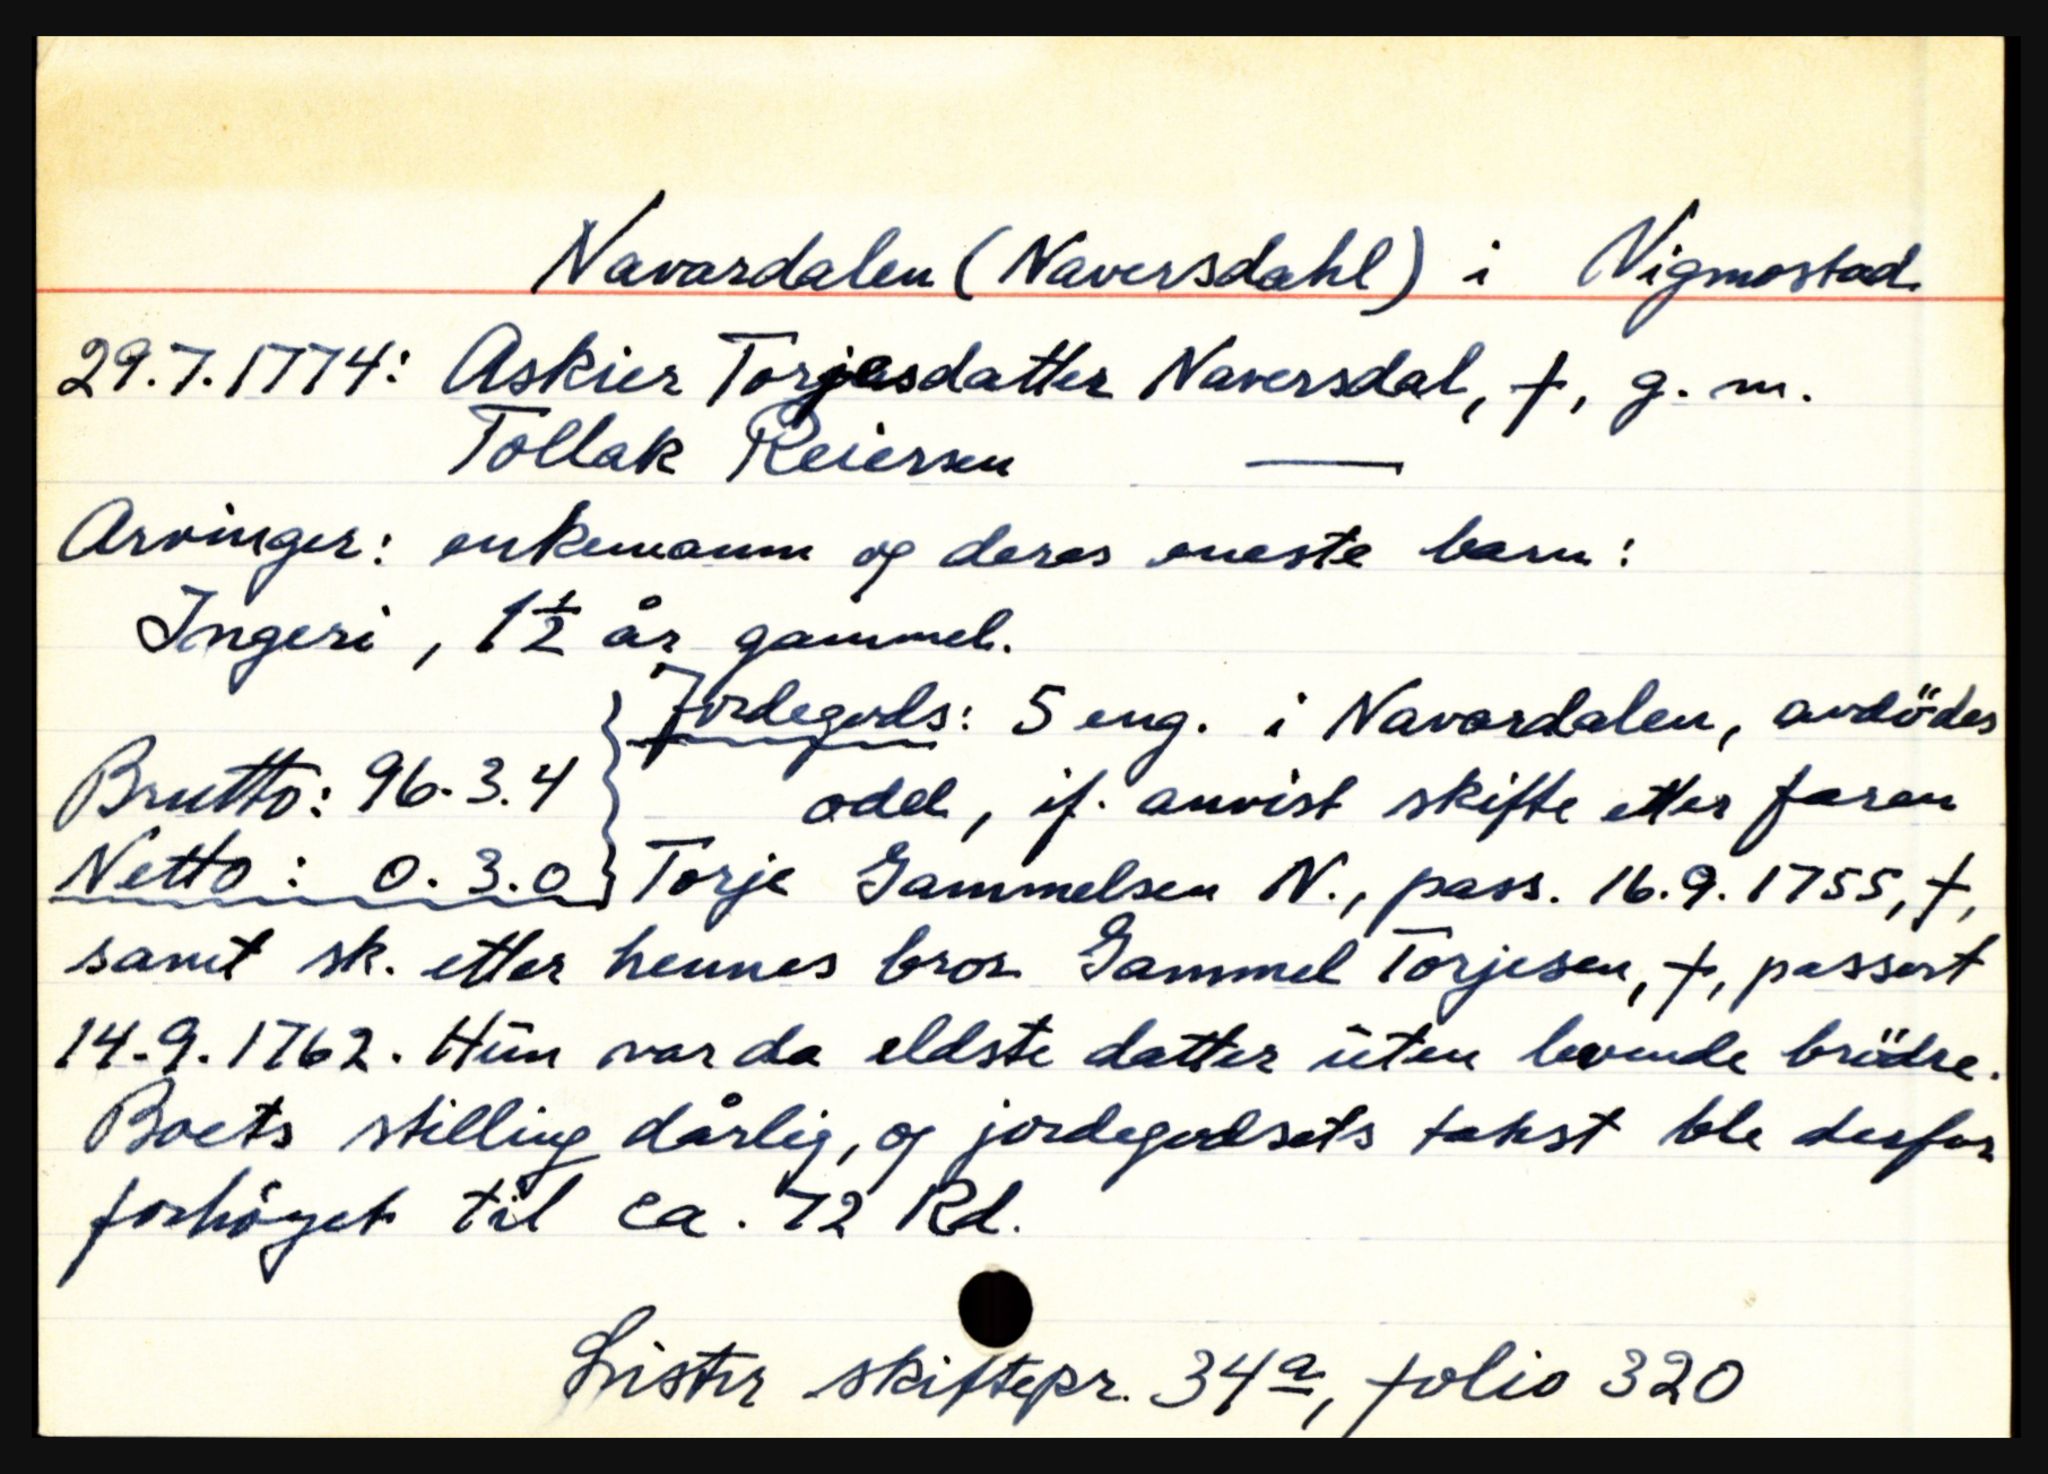 Navardalen (Naversdahl) i Vigmostad
29.7.1774: Askier Torjesdatter Naversdal, †, g. m.
Tollak Reiersen —
Arvinger: enkemann og deres eneste barn:
Ingeri, 1½ år gammel.
Jordegods: 5 eng. i Navardalen, avdödes
Brutto: 96.3.4 odel, if. anvist skifte etter faren
Netto: 0.3.0 Torje Gammelsen N., pass. 16.9.1755, †,
samt sk. etter hennes bror Gammel Torjesen, †, passert
14.9.1762. Hun var da eldste datter uten levende brödre.
Boets stilling dårlig, og jordegodsets takst ble derfor
forhöyet til ca. 72 Rd.
Lister skiftepr. 34a, folio 320